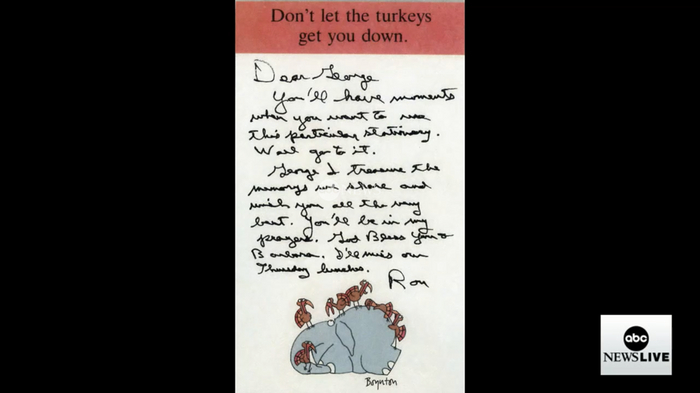 Don't let the turkeys
get you down.
Dear George
You'll have moments
when you want to use
this particular stationary.
Well go to it.
George I treasure the
memorys we share and
wish you all the very
best. You'll be in my
prayers. God Bless You &
Barbara. I'll miss our
Thursday lunches.
Ron
Boynton
abc
NEWSLIVE